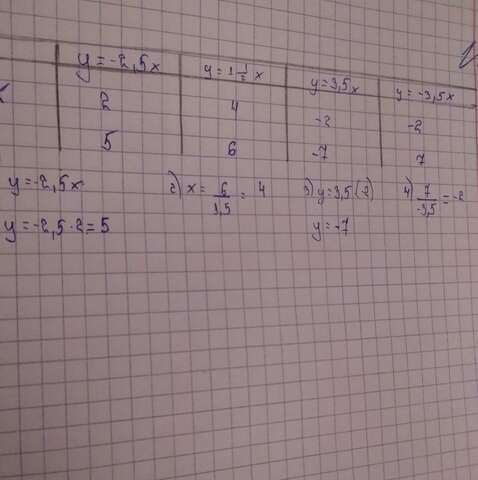 y = -2,5x y = 1 1/2 x y = 3,5x y = -3,5x
x 2 4 -2 -2
5 6 -7 7
y = -2,5x 2) x = 6/1,5 = 4 3) y = 3,5·(-2) 4) 7/-3,5 = -2
y = -2,5·2 = 5 y = -7